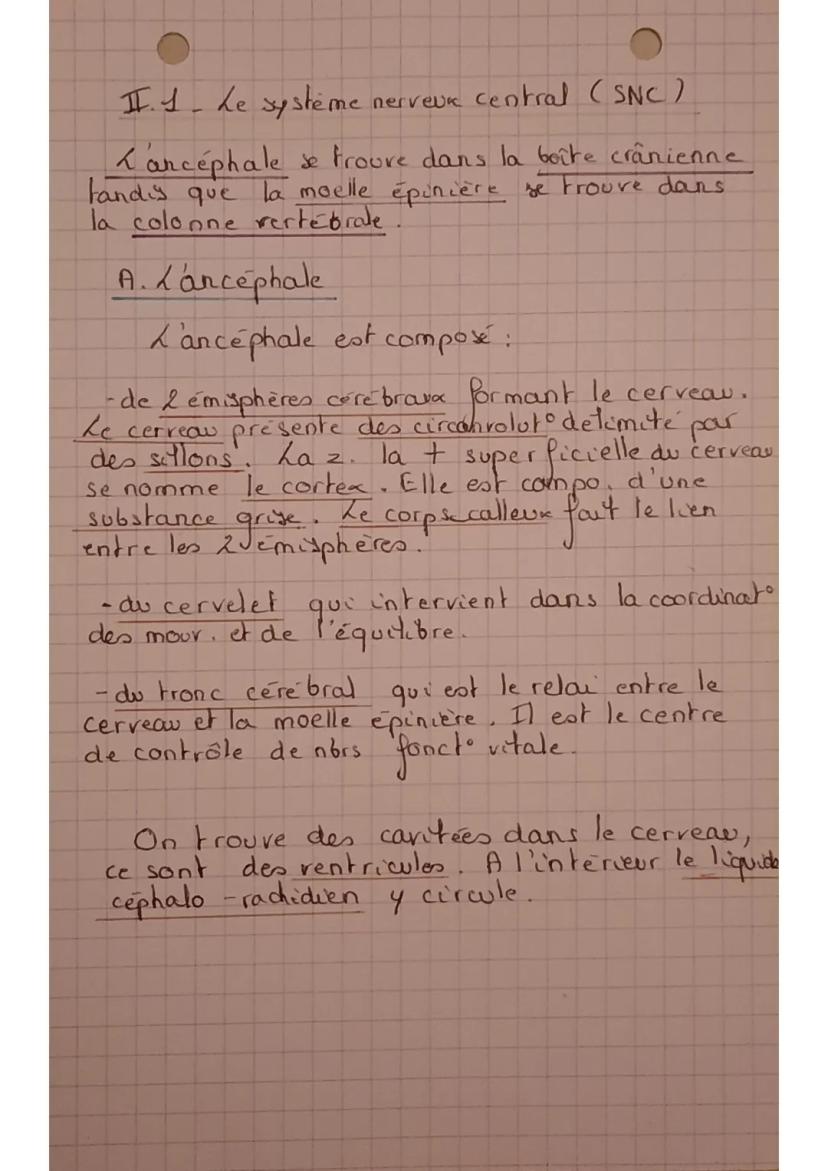 II.1 - Le système nerveux central (SNC)
L'ancéphale se trouve dans la boîte crânienne
tandis que la moelle épinière se trouve dans
la colonne vertébrale.
A. L'ancéphale
L'ancéphale est composé :
- de 2 émisphères cérébraux formant le cerveau.
Le cerveau présente des circonvolut° délimité par
des sillons. La z. la + superficielle du cerveau
se nomme le cortex. Elle est compo. d'une
substance grise. Le corps calleux fait le lien
entre les 2 émisphères.
- du cervelet qui intervient dans la coordinat°
des mouv. et de l'équilibre.
- du tronc cérébral qui est le relai entre le
cerveau et la moelle épinière. Il est le centre
de contrôle de nbrs fonct° vitale.
On trouve des cavitées dans le cerveau,
ce sont des ventricules. A l'intérieur le liquide
céphalo-rachidien y circule.